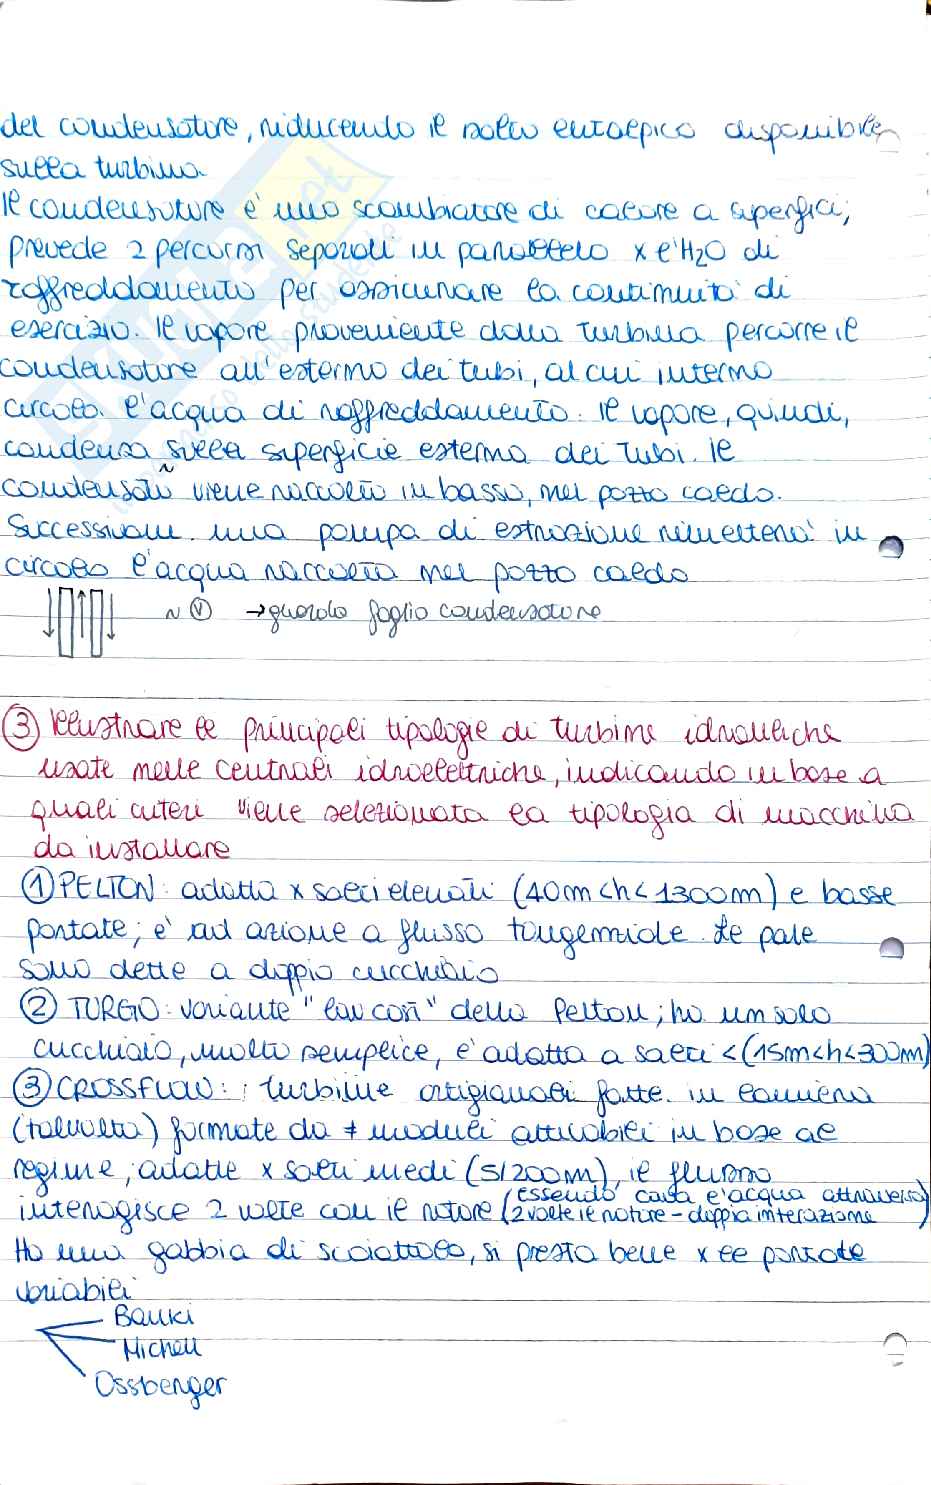 del condensatore, riducendo il salto entalpico disponibile
sulla turbina.
Il condensatore è uno scambiatore di calore a superfici,
prevede 2 percorsi separati in parallelo x l'H2O di
raffreddamento per assicurare la continuità di
esercizio. Il vapore proveniente dalla turbina percorre il
condensatore all'esterno dei tubi, al cui interno
circola l'acqua di raffreddamento. Il vapore, quindi,
condensa sulla superficie esterna dei tubi. Il
condensato viene raccolto in basso, nel pozzo caldo.
Successivam. una pompa di estrazione rimetterà in
circolo l'acqua raccolta nel pozzo caldo
~ V →guarda foglio condensatore
③ Illustrare le principali tipologie di turbine idrauliche
usate nelle centrali idroelettriche, indicando in base a
quali criteri viene selezionata la tipologia di macchina
da installare
① PELTON: adatta x salti elevati (40m<h<1300m) e basse
portate; è ad azione a flusso tangenziale. Le pale
sono dette a doppio cucchiaio
② TURGO: variante "low cost" della Pelton; ho un solo
cucchiaio, molto semplice, è adatta a salti < (15m<h<300m)
③ CROSSFLOW: turbine artigianali fatte in lamiera
(talvolta) formate da ≠ moduli attivabili in base al
regime; adatte x salti medi (5/200m), il flusso
interagisce 2 volte con il rotore (essendo cava l'acqua attraversa
2 volte il rotore - doppia interazione)
Ho una gabbia di scoiattolo, si presta bene x le portate
variabili
Banki
Michell
Ossberger